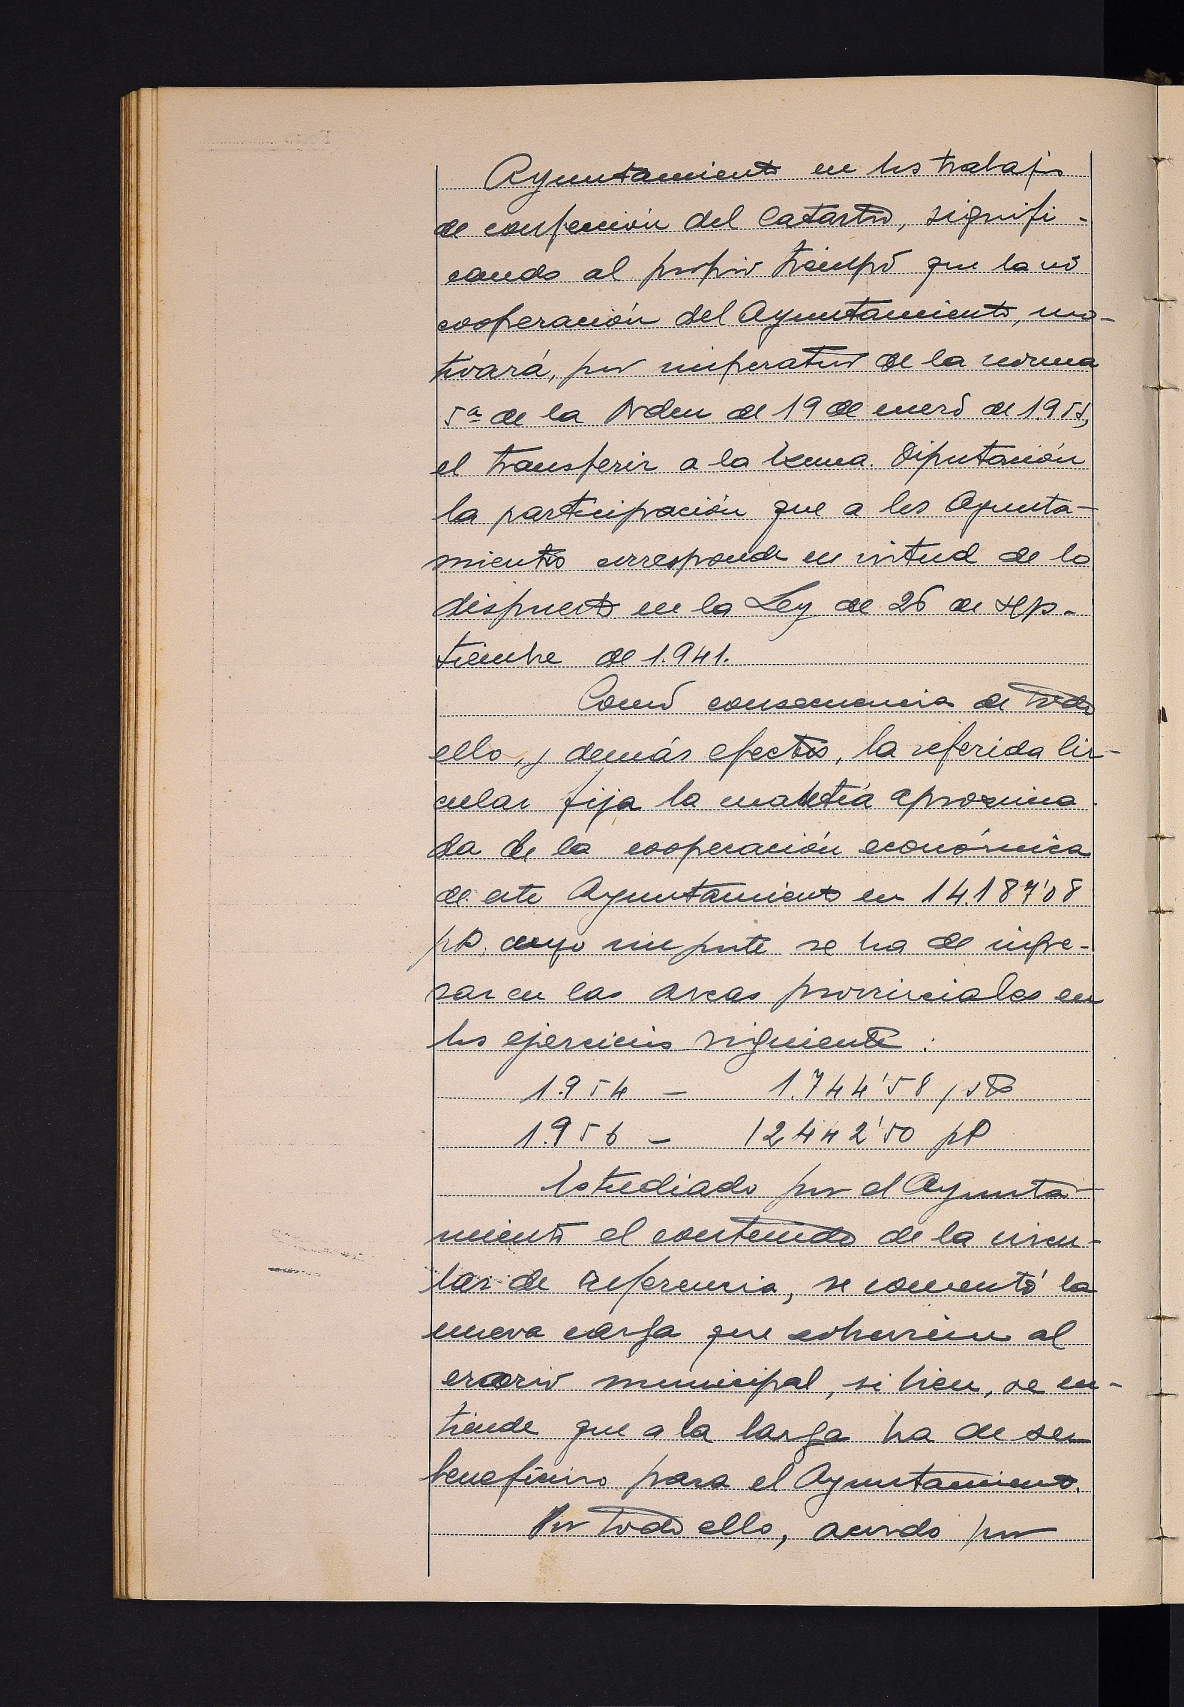 Ayuntamiento en los trabajos
de confección del Catastro, signifi-
cando al propio tiempo que la no
cooperación del Ayuntamiento, mo-
tivará, por imperativo de la norma
5ª de la Orden de 19 de enero de 1.951,
el transferir a la Excma. Diputación
la participación que a los Ayunta-
mientos corresponde en virtud de lo
dispuesto en la Ley de 26 de sep-
tiembre de 1.941.
Como consecuencia de todo
ello, y demás efectos, la referida Cir-
cular fija la cuantía aproxima
da de la cooperación económica
de este Ayuntamiento en 14.187'08
pts, cuyo importe se ha de ingre-
sar en las arcas provinciales en
los ejercicios siguientes:
1.954 - 1.744'58 pts
1.956 - 12.442'50 pts
Estudiado por el Ayunta-
miento el contenido de la circu-
lar de referencia, se comentó la
nueva carga que sobreviene al
erario municipal, si bien, se en-
tiende que a la larga ha de ser
beneficioso para el Ayuntamiento.
Por todo ello, acordo por